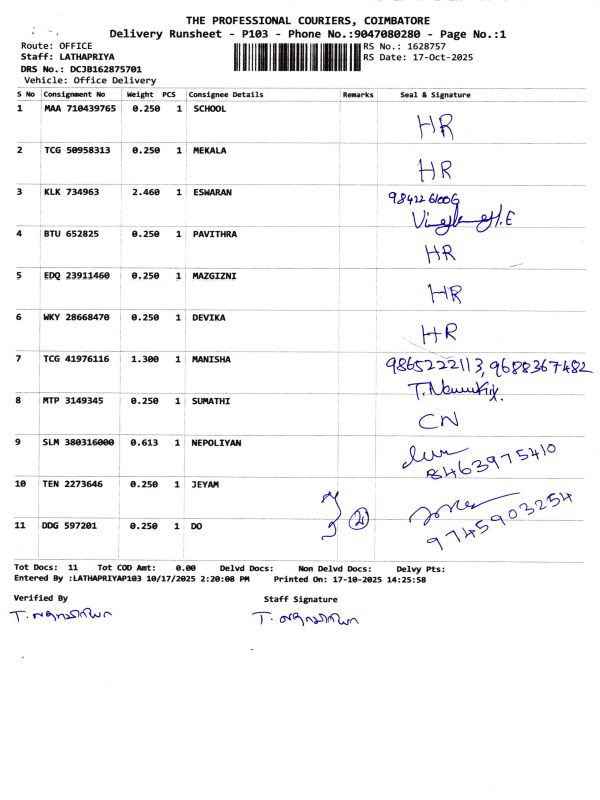 THE PROFESSIONAL COURIERS, COIMBATORE
Delivery Runsheet - P103 - Phone No.:9047080280 - Page No.:1
Route: OFFICE RS No.: 1628757
Staff: LATHAPRIYA RS Date: 17-Oct-2025
DRS No.: DCJB162875701
Vehicle: Office Delivery
S No Consignment No Weight PCS Consignee Details Remarks Seal & Signature
1 MAA 710439765 0.250 1 SCHOOL HR
2 TCG 50958313 0.250 1 MEKALA HR
3 KLK 734963 2.460 1 ESWARAN 9842261006
4 BTU 652825 0.250 1 PAVITHRA HR
5 EDQ 23911460 0.250 1 MAZGIZNI HR
6 WKY 28668470 0.250 1 DEVIKA HR
7 TCG 41976116 1.300 1 MANISHA 9865222113, 9688367482
8 MTP 3149345 0.250 1 SUMATHI CN
9 SLM 380316000 0.613 1 NEPOLIYAN 8463975410
10 TEN 2273646 0.250 1 JEYAM
11 DDG 597201 0.250 1 DO 9745903254
Tot Docs: 11 Tot COD Amt: 0.00 Delvd Docs: Non Delvd Docs: Delvy Pts:
Entered By :LATHAPRIYAP103 10/17/2025 2:20:08 PM Printed On: 17-10-2025 14:25:58
Verified By Staff Signature